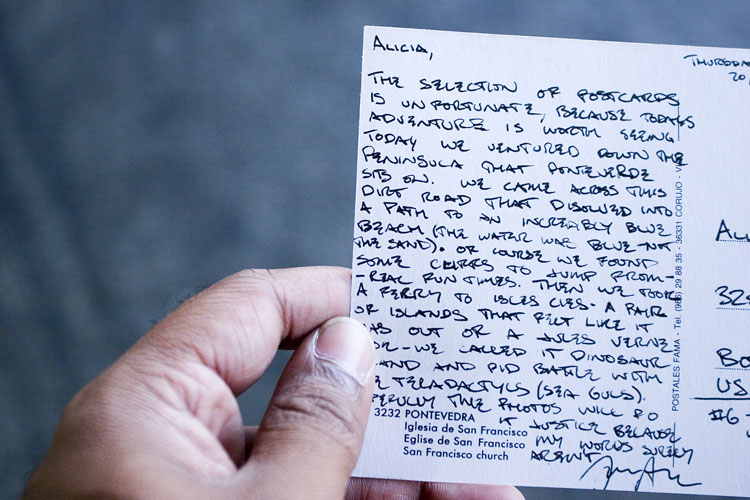 ALICIA,
THE SELECTION OF POSTCARDS
IS UNFORTUNATE, BECAUSE TODAYS
ADVENTURE IS WORTH SEEING
TODAY WE VENTURED DOWN THE
PENINSULA THAT PONTEVERDE
SITS ON. WE CAME ACROSS THIS
DIRT ROAD THAT DISOLVED INTO
A PATH TO AN INCREABLY BLUE
BEACH (THE WATER WAS BLUE-NOT
THE SAND). OF COURSE WE FOUND
SOME CLIFFS TO JUMP FROM-
-REAL FUN TIMES. THEN WE TOOK
A FERRY TO ISLES CIES- A PAIR
OF ISLANDS THAT FELT LIKE IT
WAS OUT OF A JULES VERNE
WE CALLED IT DINOSAUR
AND DID BATTLE WITH
TERADACTYLS (SEA GULS).
THE PHOTOS WILL DO
IT JUSTICE BECAUSE
MY WORDS SURELY
ARENT
3232 PONTEVEDRA
Iglesia de San Francisco
Eglise de San Francisco
San Francisco church
POSTALES FAMA - Tel. (986) 29 88 35 - 36331 CORUJO - VI
THURSDA
20
AL
32
BO
US
#6